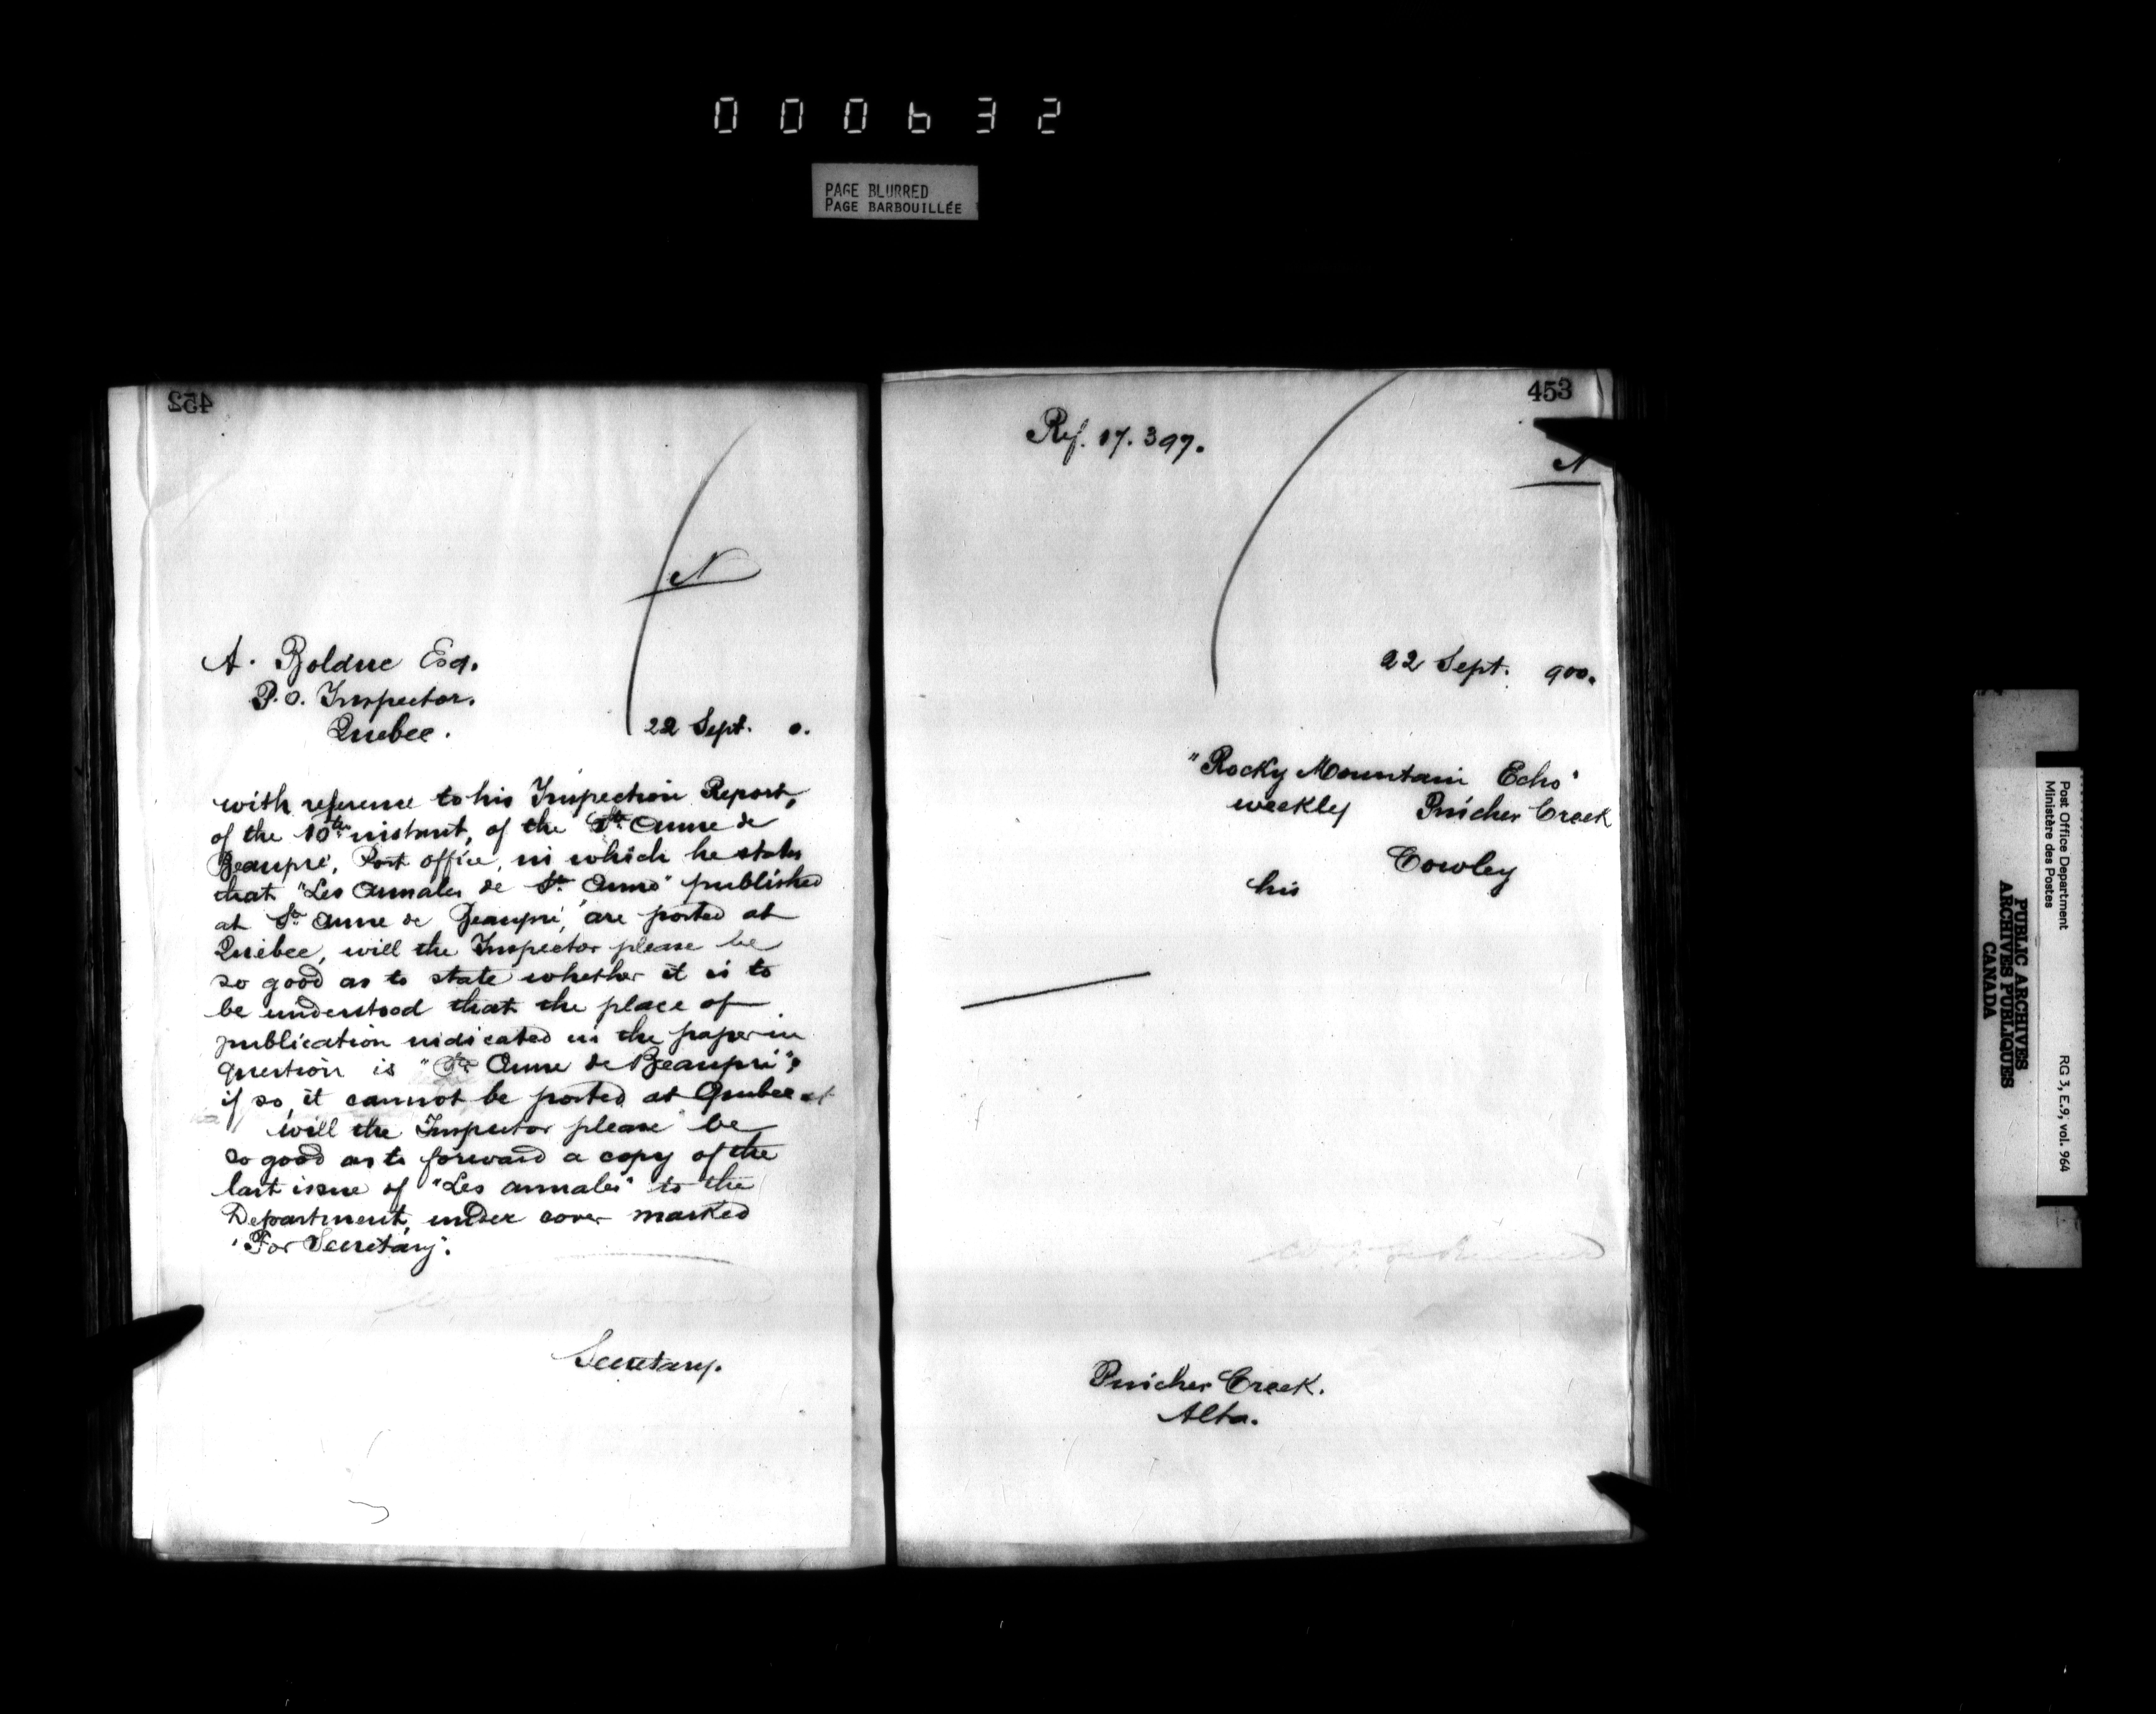 000632
PAGE BLURRED
PAGE BARBOUILLÉE
452
N
A. Bolduc Esq.
P.O. Inspector.
Quebec.
22 Sept. 0.
with reference to his Inspection Report,
of the 10th instant, of the Ste Anne de
Beaupré, Post office, in which he states
that "Les Annales de Ste Anne" published
at Ste Anne de Beaupré, are posted at
Quebec, will the Inspector please be
so good as to state whether it is to
be understood that the place of
publication indicated in the paper in
question is "Ste Anne de Beaupré";
if so, it cannot be posted at Quebec at
will the Inspector please be
so good as to forward a copy of the
last issue of "Les Annales" to the
Department, under cover marked
"For Secretary".
Secretary.
453
Ref. 17.397.
N
22 Sept. 900.
"Rocky Mountain Echo"
weekly Pincher Creek
Cowley
his
Pincher Creek.
Alta.
Post Office Department
Ministère des Postes
RG 3, E.9, vol. 964
PUBLIC ARCHIVES
ARCHIVES PUBLIQUES
CANADA